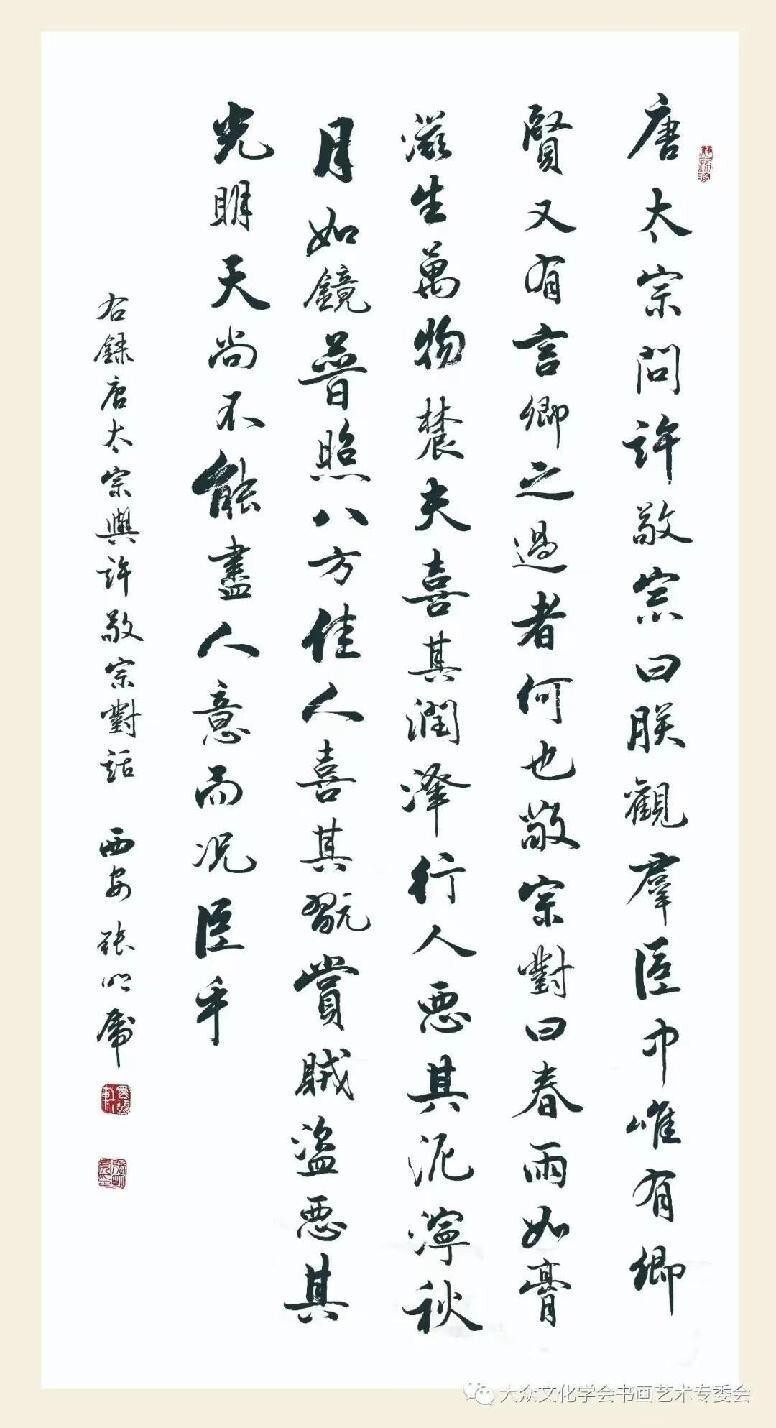 唐太宗問許敬宗曰朕觀羣臣中唯有卿
賢又有言卿之過者何也敬宗對曰春雨如膏
滋生萬物農夫喜其潤澤行人惡其泥濘秋
月如鏡普照八方佳人喜其翫賞賊盜惡其
光明天尚不能盡人意而况臣乎
右録唐太宗與許敬宗對話 西安張
大众文化学会书画艺术专委会